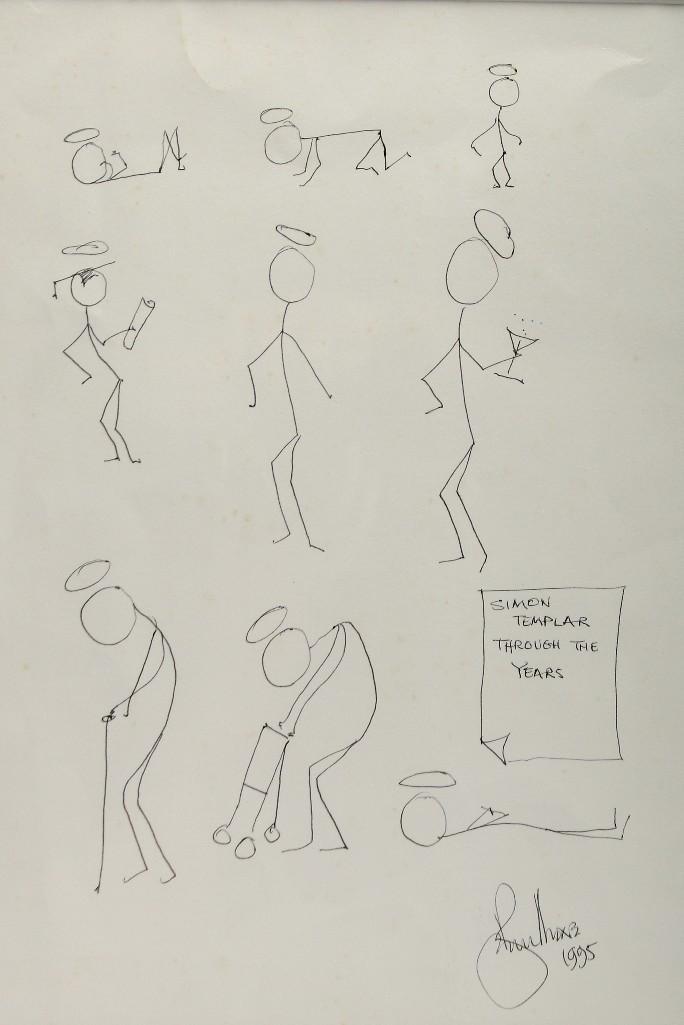 SIMON
TEMPLAR
THROUGH THE
YEARS
1995